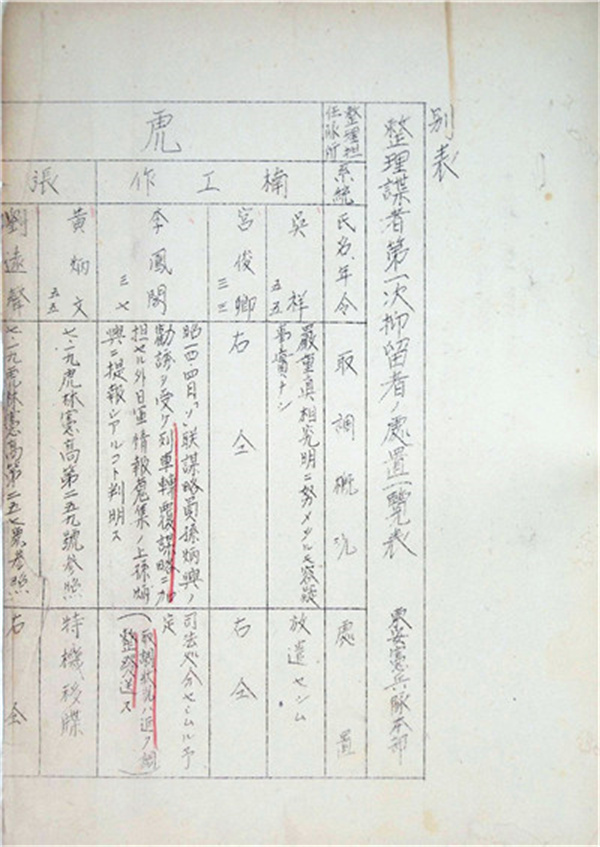 別表
整理謀者第一次抑留者ノ處置一覽表
東安憲兵隊本部
整理担
任隊所
系統
氏名、年令
取調概況
處置
虎
楠工作
張
吳祥
五五
嚴重真相究明ニ努メタルモ容疑
事實ナシ
放遣セシム
宮俊卿
三三
右仝
右仝
李鳳閣
三七
昭一四・四月ソ联謀略員孫炳興ノ
勸誘ヲ受ケ列車轉覆謀略ニ加
担セル外日軍情報蒐集ノ上孫炳
興ニ提報シアルコト判明ス
司法处分セシムル予
定
取調狀況ハ近ク
整發送ス
黃炳文
五五
七・二九虎林憲高第二五九號参照
特機移牒
劉遠聲
七・二九虎林憲高第二五七票参照
右仝